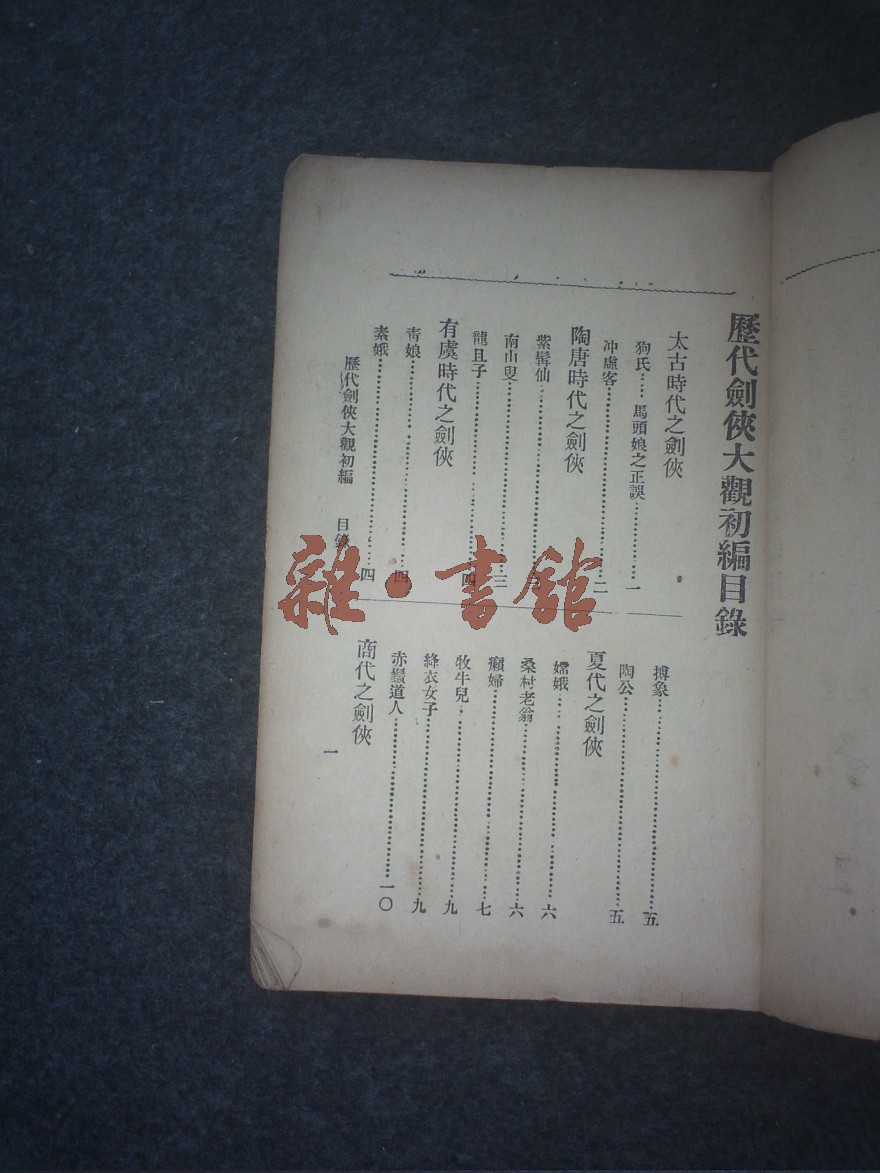 歷代劍俠大觀初編目錄
太古時代之劍俠
狗氏……馬頭娘之正誤……一
冲虛客……二
陶唐時代之劍俠
紫髯仙……三
南山叟……三
龍且子……四
有虞時代之劍俠
青娘……四
素娥……四
搏象……五
陶公……五
夏代之劍俠
嫦娥……六
桑村老翁……六
癩婦……七
牧牛兒……九
絳衣女子……九
赤鬚道人……一〇
商代之劍俠
歷代劍俠大觀初編 目錄 一
雜·書館